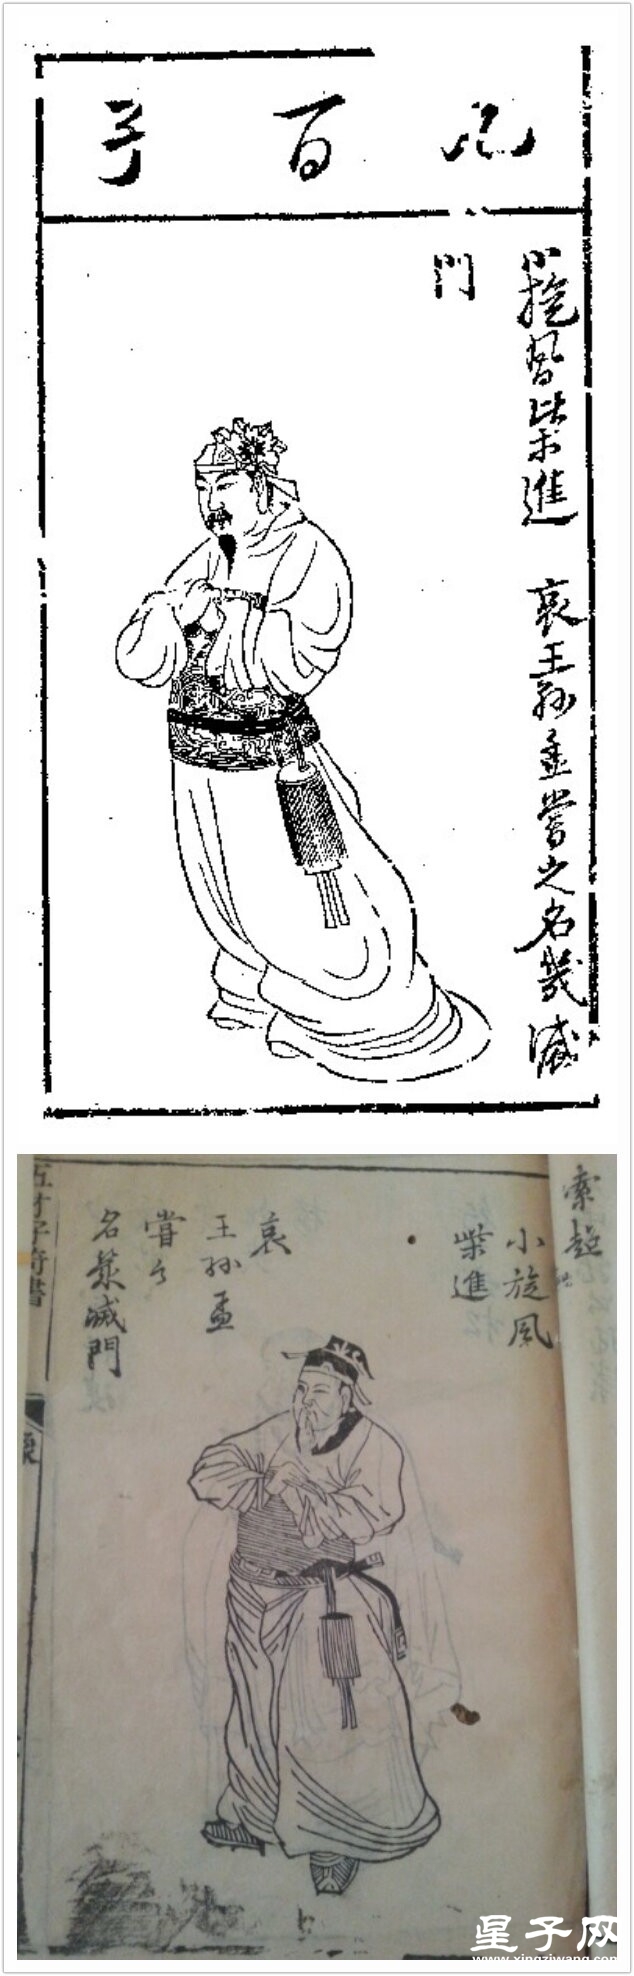 百子
小旋風柴進 哀王孫孟嘗之名幾滅
門
索超
小旋風
柴進
哀
王孫孟
嘗之
名幾滅門
五才子奇書
星子网
www.xingziwang.com